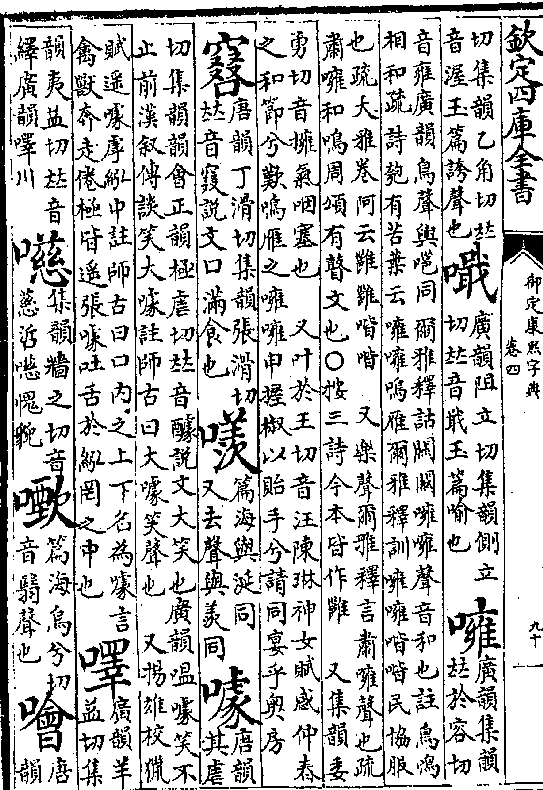 欽定四庫全書
御定康熙字典
卷四
九十
切集韻乙角切𠀤
音渥玉篇誘聲也
廣韻阻立切集韻側立
切𠀤音戢玉篇喻也
噰
廣韻集韻
𠀤於容切
音雍廣韻鳥聲與嗈同爾雅釋詁關關噰噰聲音和也註鳥鳴
相和疏詩匏有苦葉云噰噰鳴雁爾雅釋訓噰噰喈喈民協服
也疏大雅卷阿云雝雝喈喈 又樂聲爾雅釋言肅噰聲也疏
肅噰和鳴周頌有瞽文也〇按三詩今本皆作雝 又集韻委
勇切音擁氣咽塞也 又叶於王切音汪陳琳神女賦感仲春
之和節兮歎鳴雁之噰噰申握椒以貽予兮請同宴乎奧房
唐韻丁滑切集韻張滑切
𠀤音窡說文口滿食也
篇海與涎同
又去聲與羨同
噱
唐韻
其虐
切集韻韻會正韻極虐切𠀤音醵說文大笑也廣韻嗢噱笑不
止前漢敘傳談笑大噱註師古曰大噱笑聲也 又揚雄校獵
賦遥噱虖紭中註師古曰口內之上下名為噱言
禽獸奔走倦極皆遥張噱吐舌於紭罔之中也
廣韻羊
益切集
韻夷益切𠀤音
繹廣韻
集韻牆之切音
慈
愧貌
篇海烏兮切
音翳聲也
噲
唐
韻